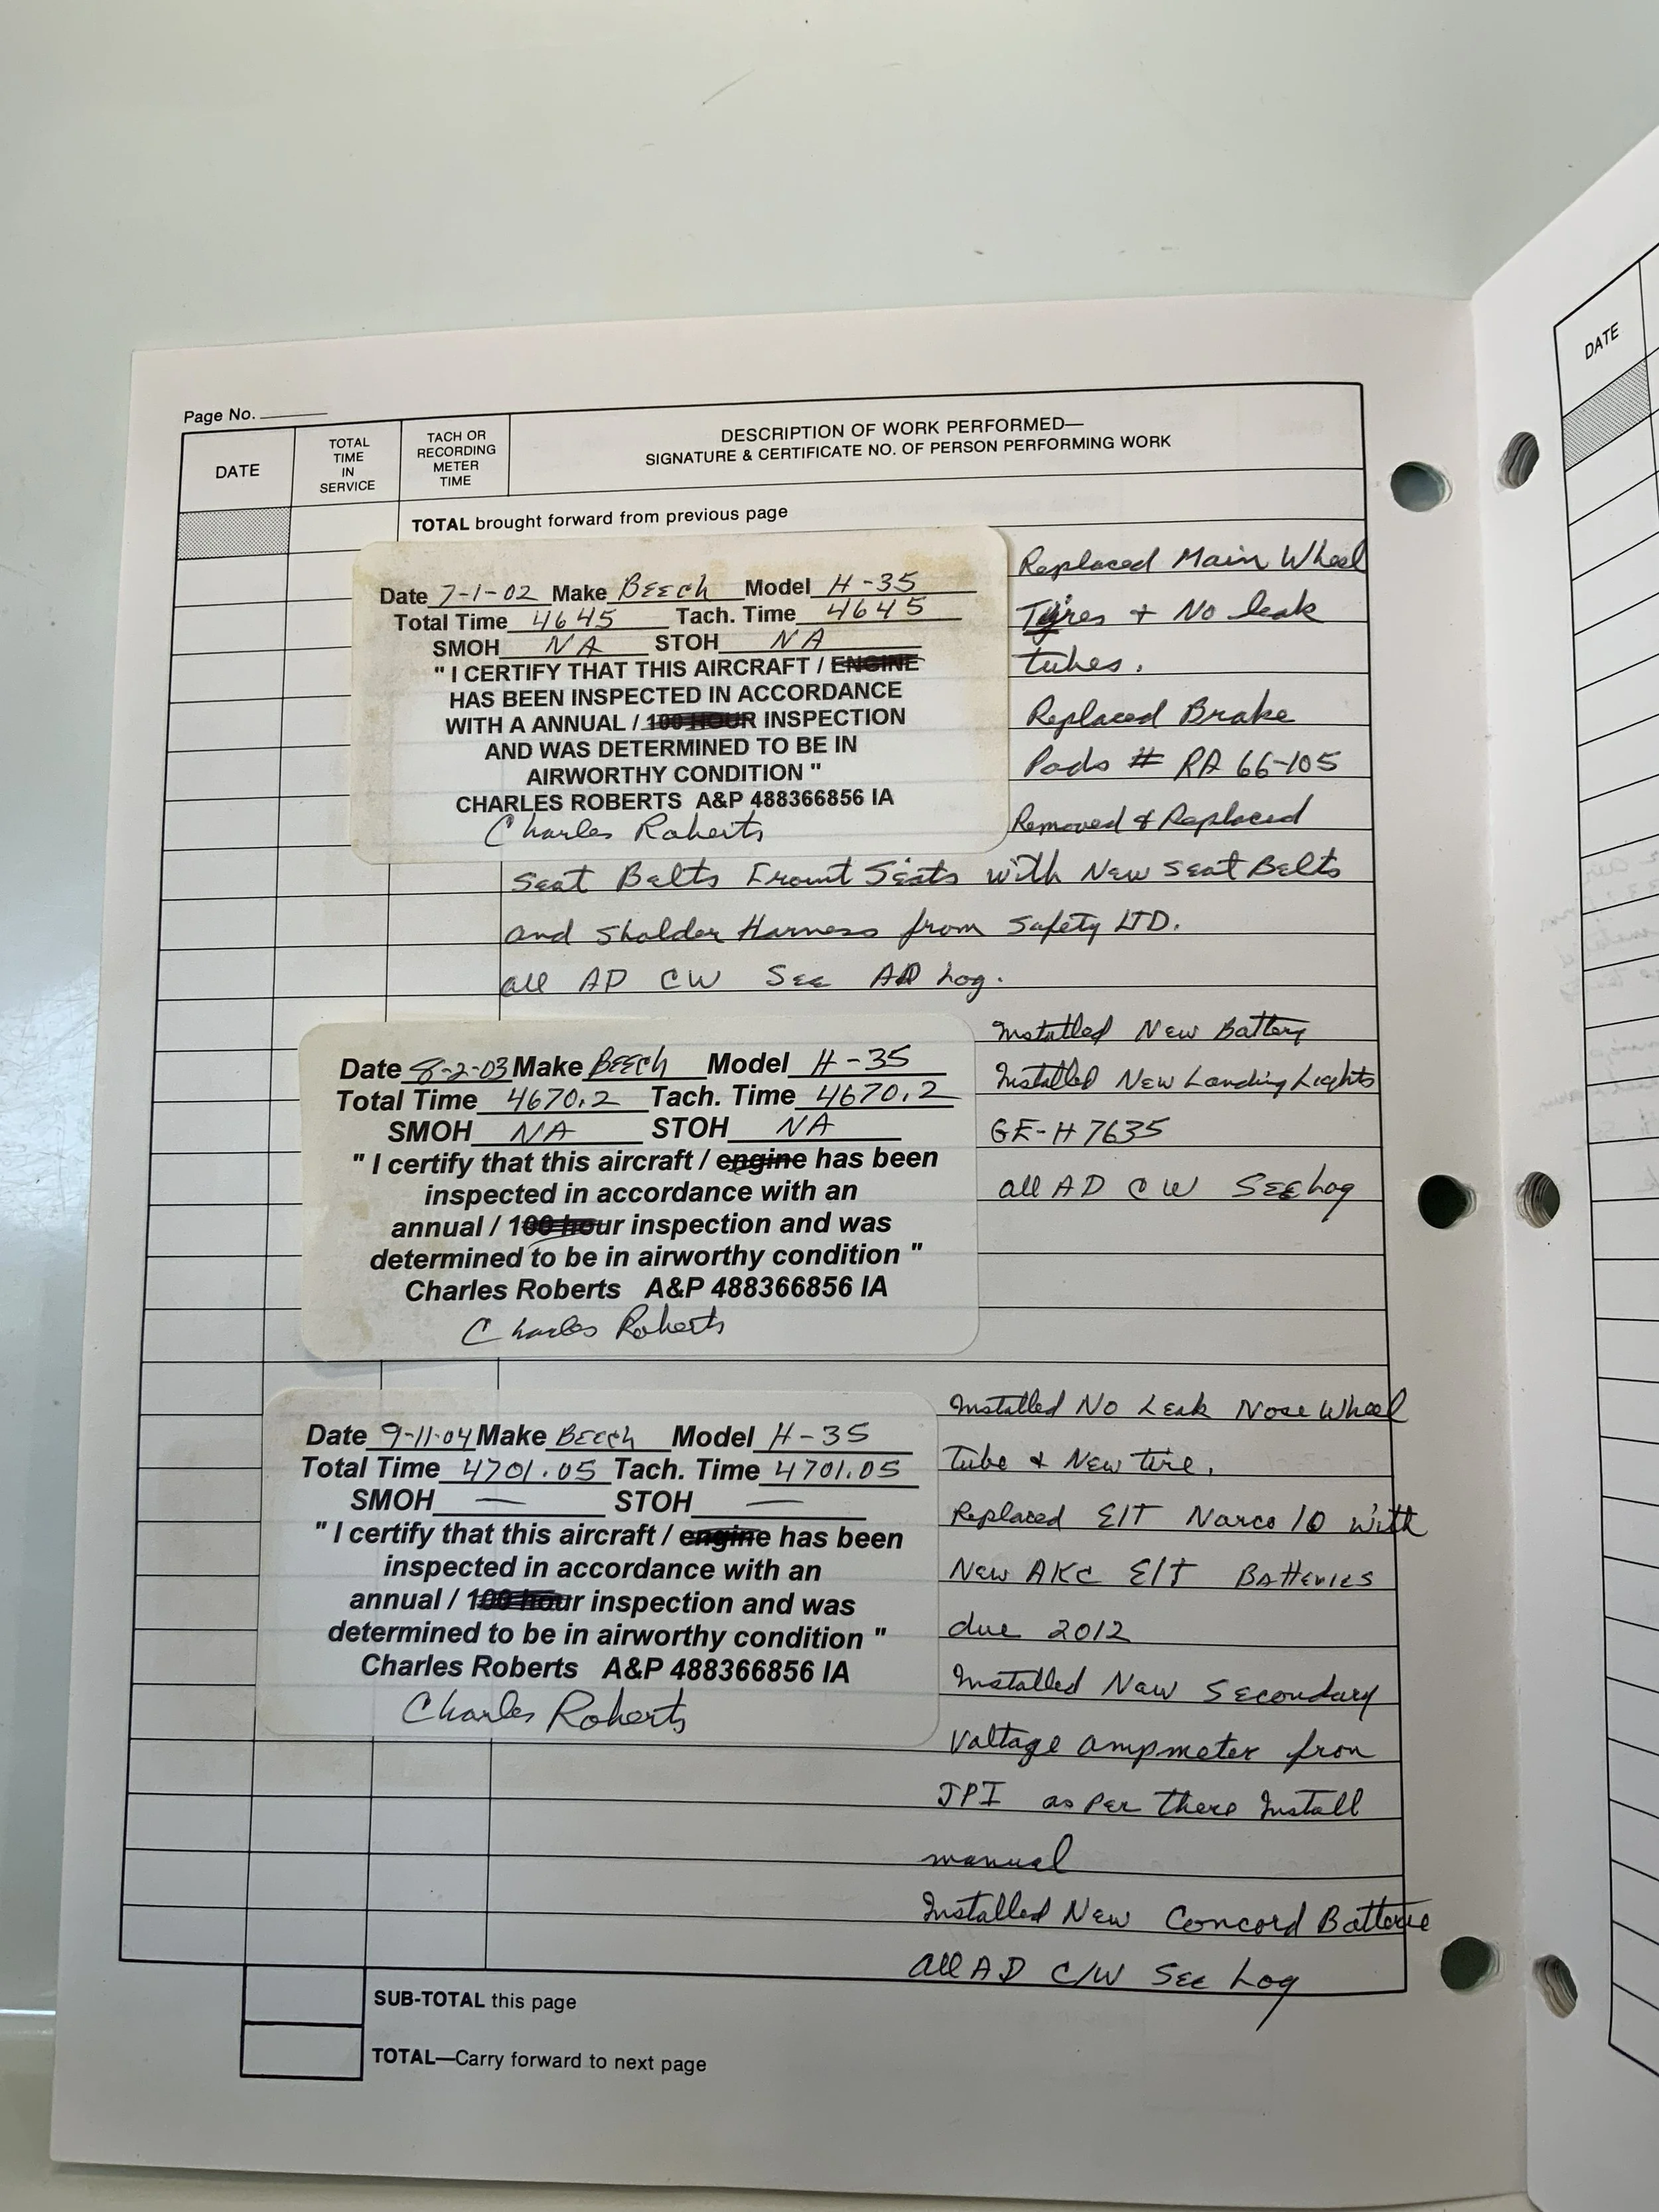 Page No.
DATE
TOTAL TIME IN SERVICE
TACH OR RECORDING METER TIME
DESCRIPTION OF WORK PERFORMED—
SIGNATURE & CERTIFICATE NO. OF PERSON PERFORMING WORK
TOTAL brought forward from previous page
Date 7-1-02 Make BEECh Model H-35
Total Time 4645 Tach. Time 4645
SMOH NA STOH NA
" I CERTIFY THAT THIS AIRCRAFT / ENGINE
HAS BEEN INSPECTED IN ACCORDANCE
WITH A ANNUAL / 100 HOUR INSPECTION
AND WAS DETERMINED TO BE IN
AIRWORTHY CONDITION "
CHARLES ROBERTS A&P 488366856 IA
Charles Roberts
Replaced Main Wheel
Tires + No leak
tubes.
Replaced Brake
Pads # RA 66-105
Removed & Replaced
Seat Belts Front Seats with New Seat Belts
and Sholder Harness from Safety LTD.
all AD CW See AD Log.
Date 8-2-03 Make BEECh Model H-35
Total Time 4670.2 Tach. Time 4670.2
SMOH NA STOH NA
" I certify that this aircraft / engine has been
inspected in accordance with an
annual / 100 hour inspection and was
determined to be in airworthy condition "
Charles Roberts A&P 488366856 IA
Charles Roberts
Installed New Battery
Installed New Landing Lights
GE-H7635
all AD CW See Log
Date 9-11-04 Make BEECh Model H-35
Total Time 4701.05 Tach. Time 4701.05
SMOH — STOH —
" I certify that this aircraft / engine has been
inspected in accordance with an
annual / 100 hour inspection and was
determined to be in airworthy condition "
Charles Roberts A&P 488366856 IA
Charles Roberts
Installed No Leak Nose Wheel
Tube & New tire.
Replaced E/T Narco 10 with
New AKC E/T Batteries
due 2012
Installed New Secondary
Voltage ampmeter from
JPI as per there Install
manual
Installed New Concord Batterie
all AD C/W See Log
SUB-TOTAL this page
TOTAL—Carry forward to next page
DATE